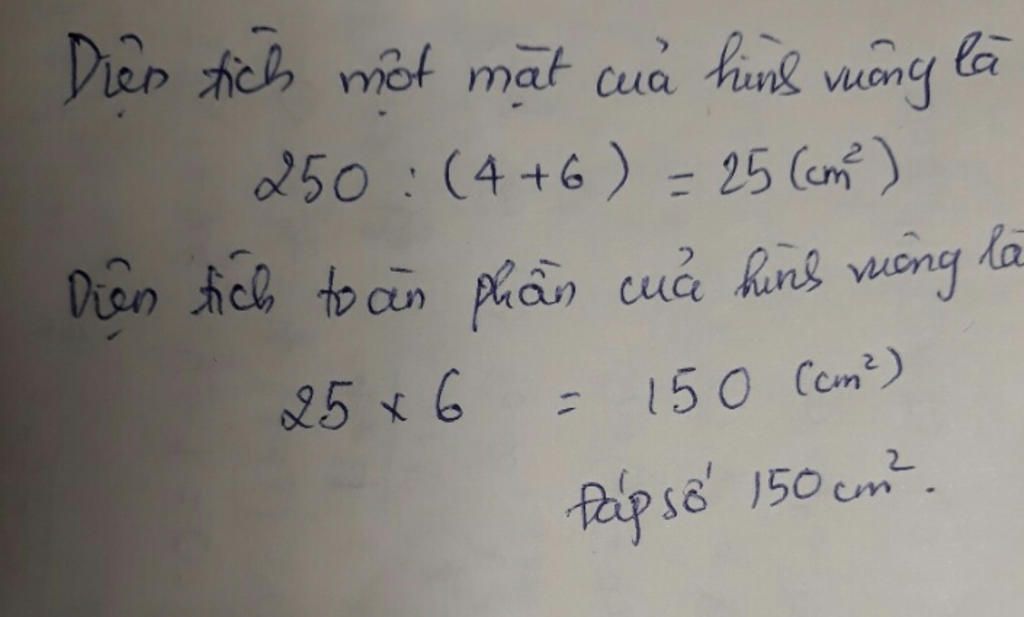 Diện tích một mặt của hình vuông là
250 : (4 + 6) = 25 (cm²)
Diện tích toàn phần của hình vuông là
25 x 6 = 150 (cm²)
Đáp số 150 cm².